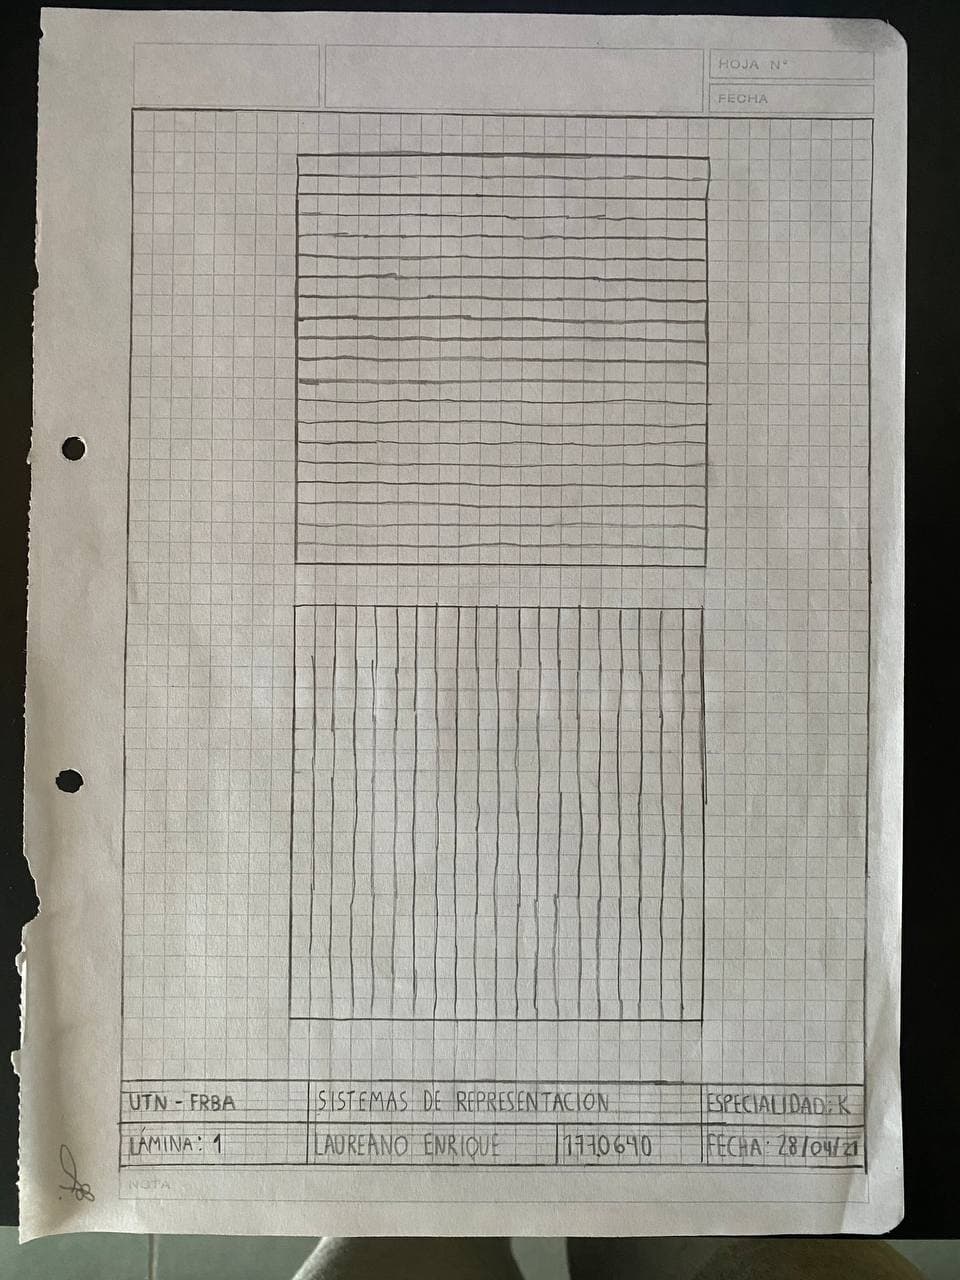 HOJA N°
FECHA
UTN - FRBA
SISTEMAS DE REPRESENTACIÓN
ESPECIALIDAD: K
LÁMINA: 1
LAUREANO ENRIQUE
1770640
FECHA: 28/04/21
NOTA